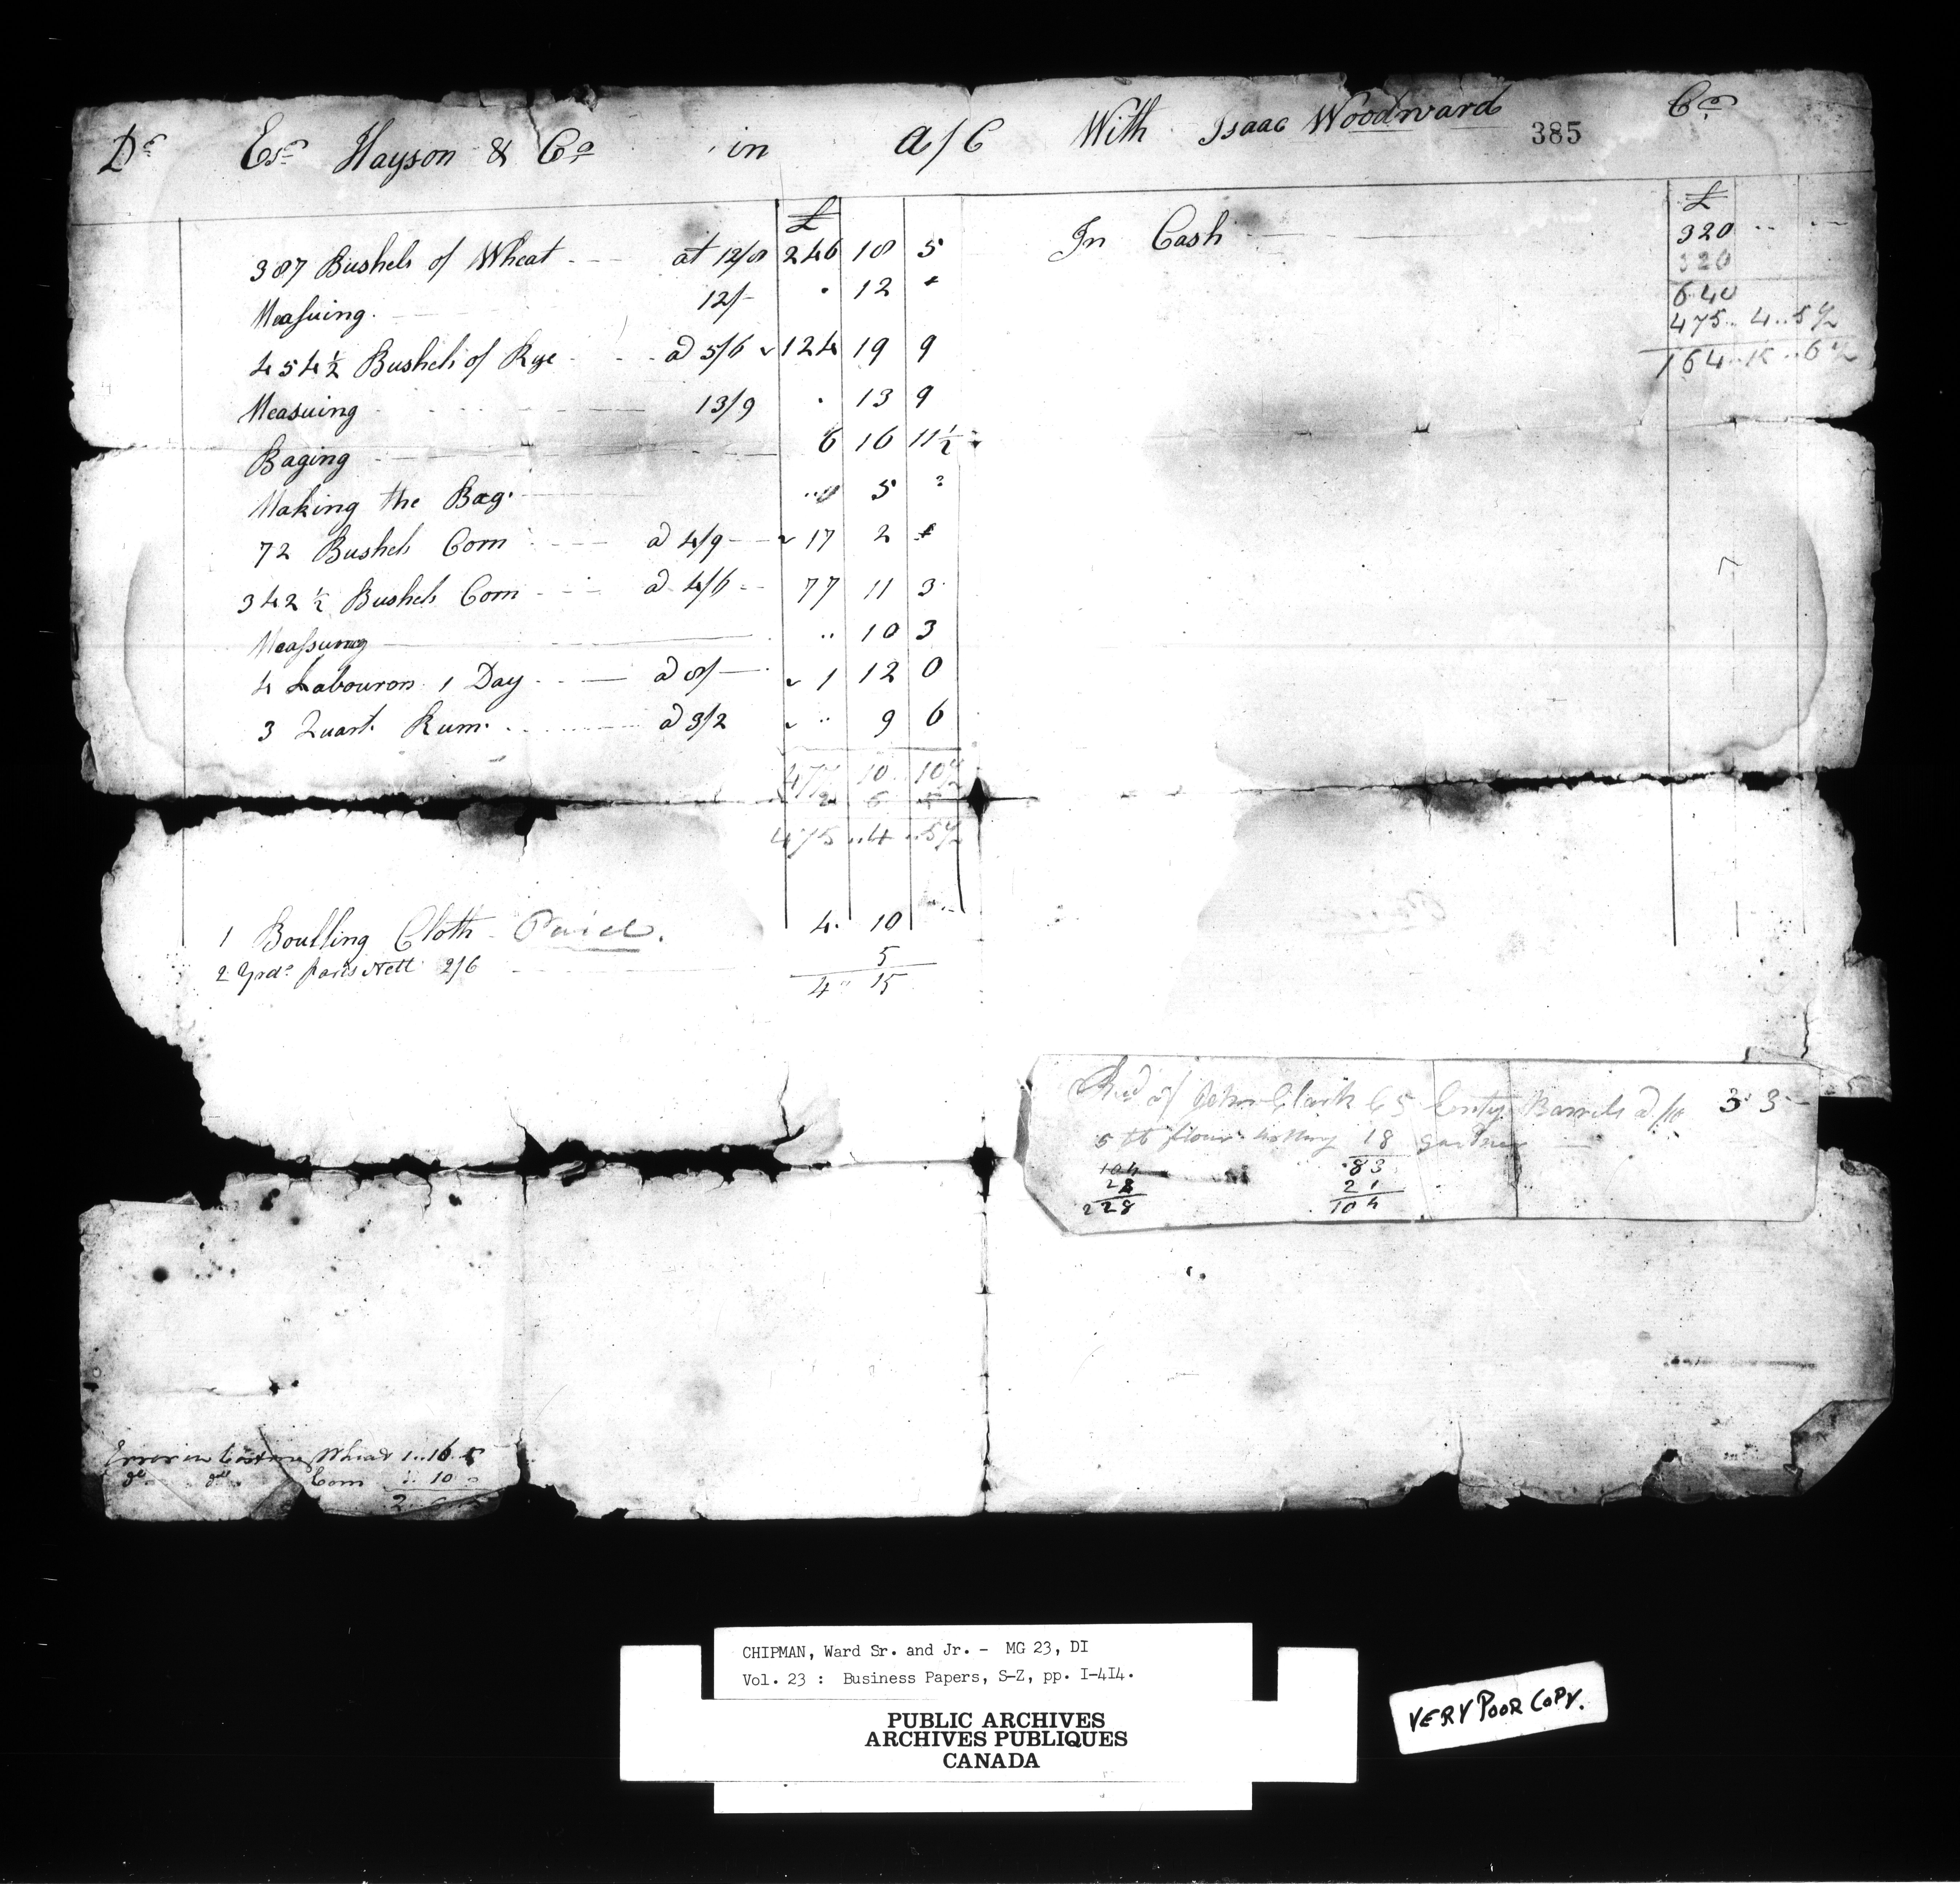 Dr Esr Hayson & Co in a/C With Isaac Woodward 385 Cr
£
387 Bushels of Wheat at 12/8 246 18 5
Measuing. 12/- 12
454½ Bushels of Rye a 5/6 124 19 9
Measuing 13/9 13 9
Baging 6 16 11½
Making the Bag. 5
72 Bushels Corn a 4/9 17 2
342½ Bushels Corn a 4/6 77 11 3
Measuring 10 3
4 Labourors 1 Day a 8/- 1 12 0
3 Quart Rum. a 3/2 9 6
477 10 10½
2 6 5
475 .. 4 .. 5½
1 Boulling Cloth Paid. 4. 10
2 Yrds Nett 2/6 5
4 " 15
£
In Cash 320
320
640
475 .. 4 .. 5½
164 .. 15 .. 6½
Recd of John Clark 65 Emty Barrels a 3 3 -
5 flour 18
104 83
28 21
228 104
Error in Casting Wheat 1..16.5
do do Corn 10 0
2
CHIPMAN, Ward Sr. and Jr. - MG 23, DI
Vol. 23 : Business Papers, S-Z, pp. I-414.
PUBLIC ARCHIVES
ARCHIVES PUBLIQUES
CANADA
VERY POOR COPY.